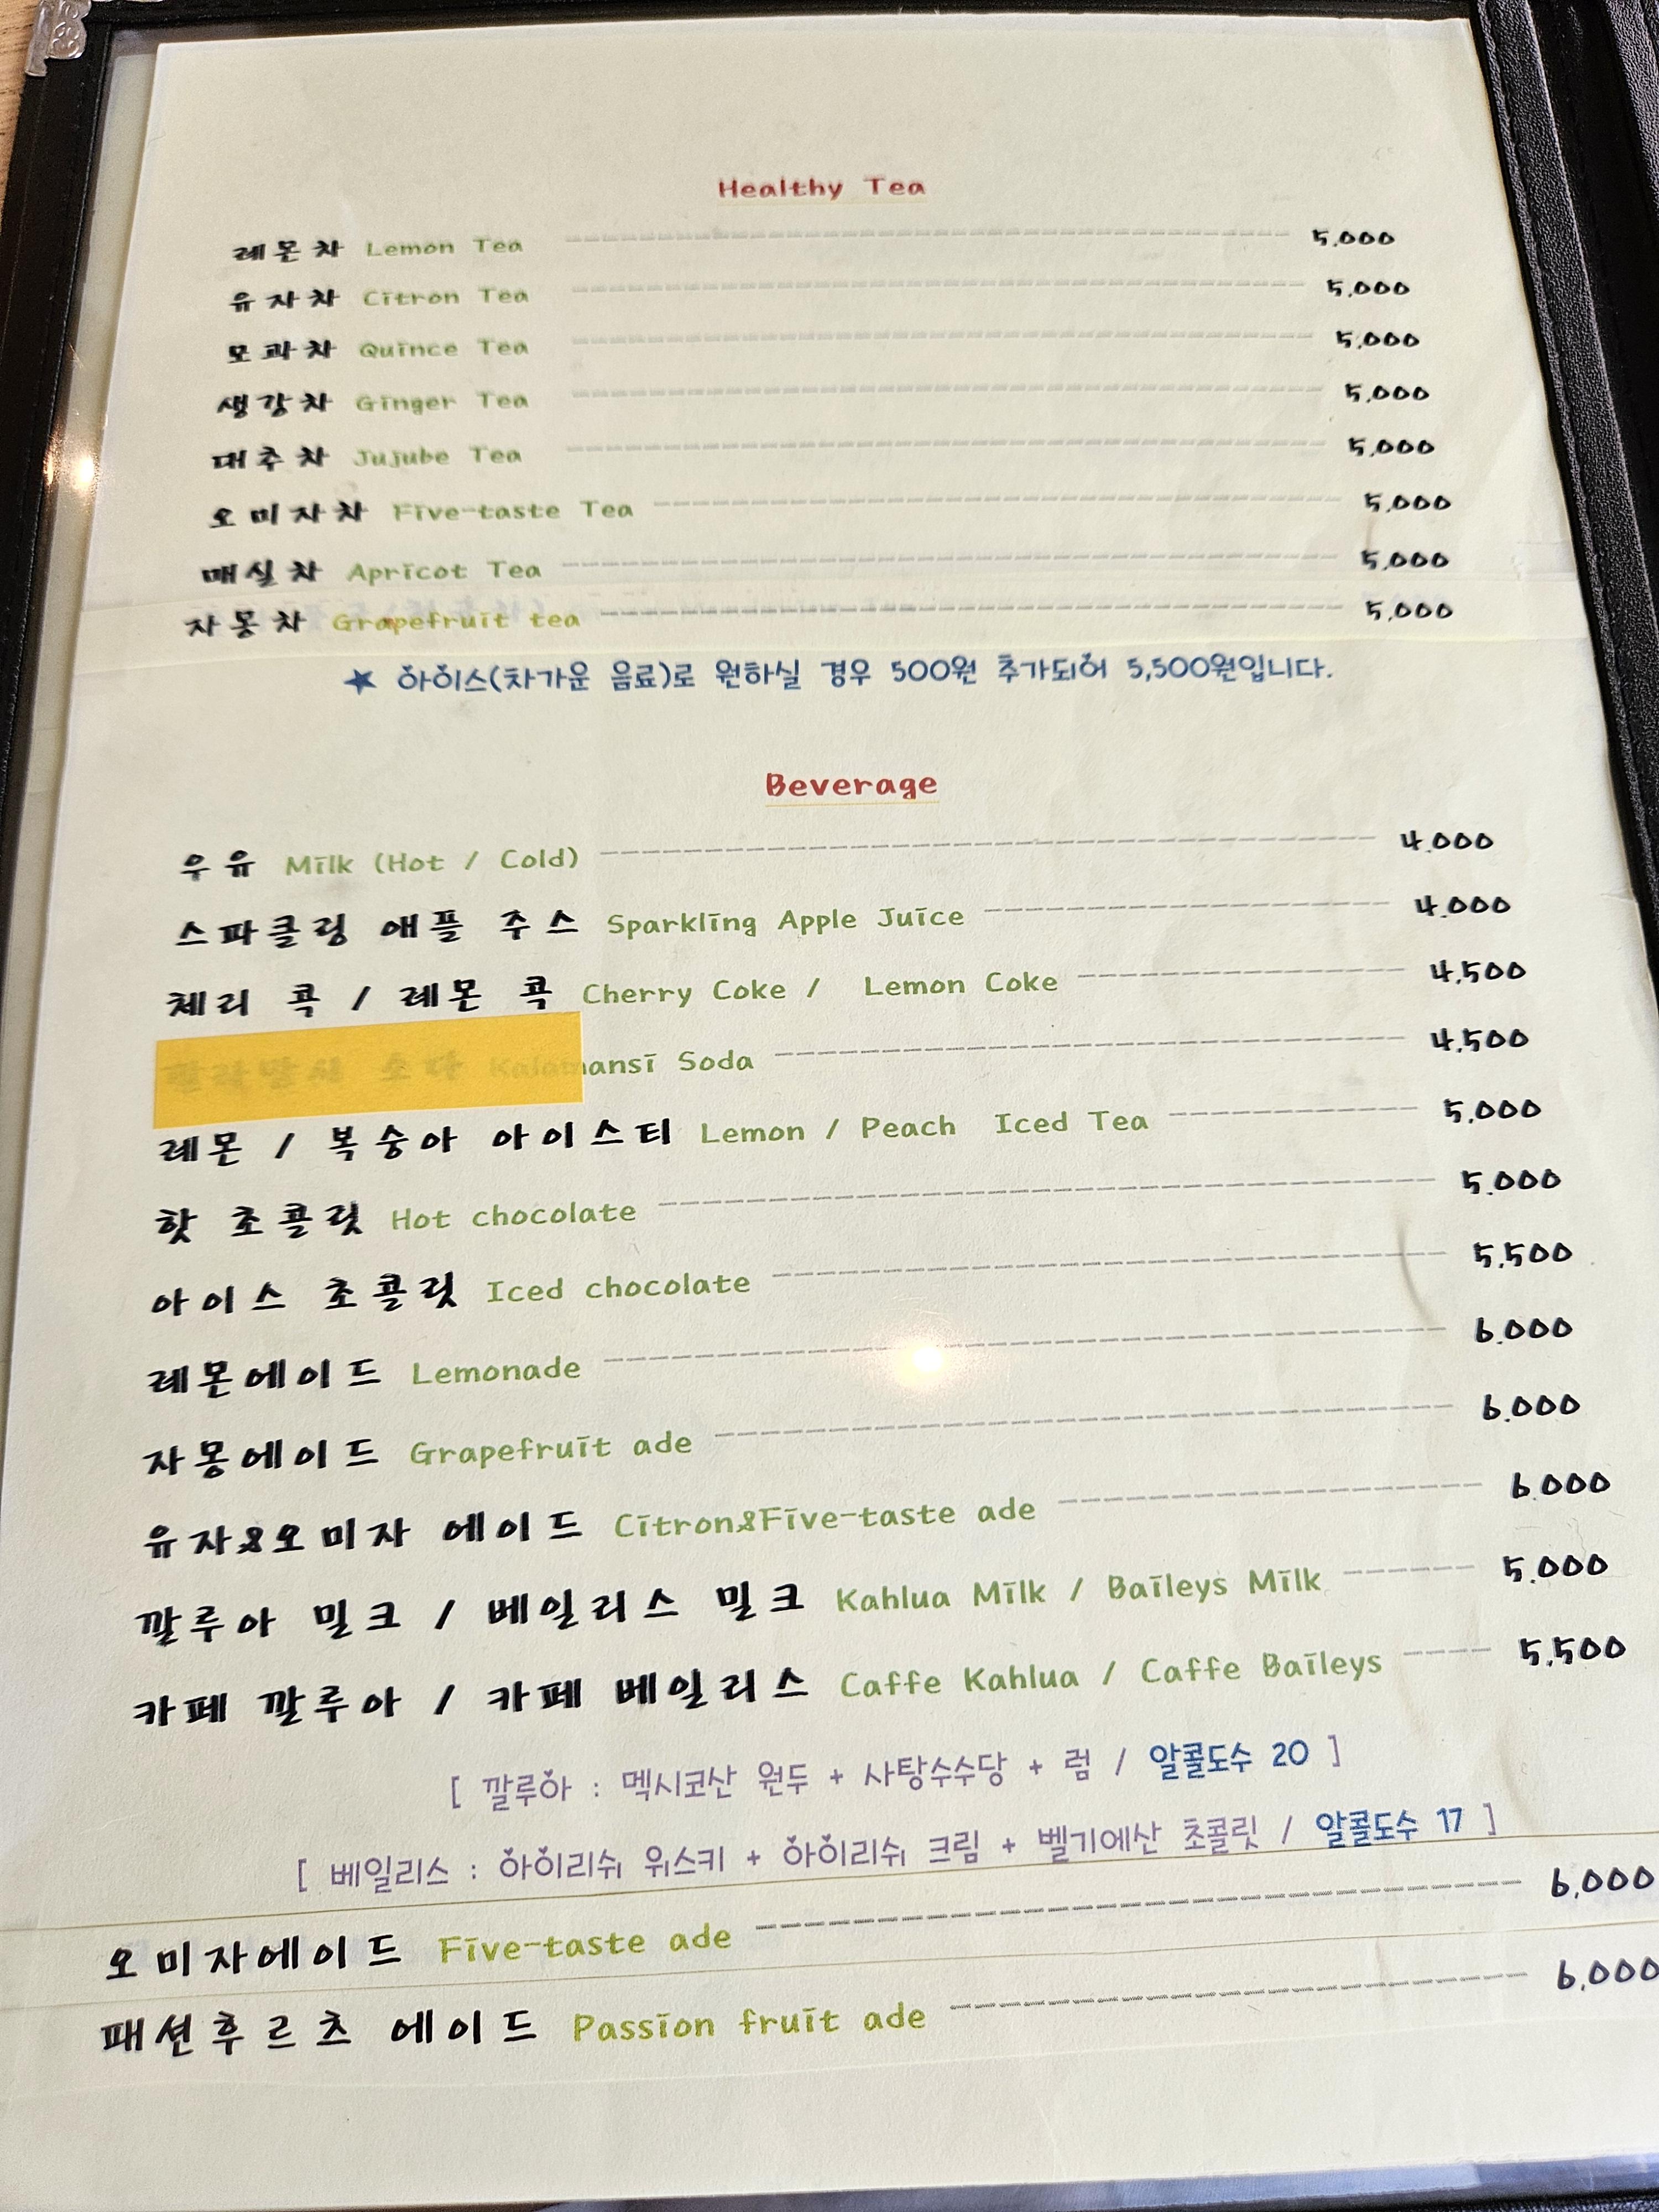 Healthy Tea
레몬차 Lemon Tea 5,000
유자차 Citron Tea 5,000
모과차 Quince Tea 5,000
생강차 Ginger Tea 5,000
대추차 Jujube Tea 5,000
오미자차 Five-taste Tea 5,000
매실차 Apricot Tea 5,000
자몽차 Grapefruit tea 5,000
★ 아이스(차가운 음료)로 원하실 경우 500원 추가되어 5,500원입니다.
Beverage
우유 Milk (Hot / Cold) 4,000
스파클링 애플 주스 Sparkling Apple Juice 4,000
체리 콕 / 레몬 콕 Cherry Coke / Lemon Coke 4,500
소다 Kalamansi Soda 4,500
레몬 / 복숭아 아이스티 Lemon / Peach Iced Tea 5,000
핫 초콜릿 Hot chocolate 5,000
아이스 초콜릿 Iced chocolate 5,500
레몬에이드 Lemonade 6,000
자몽에이드 Grapefruit ade 6,000
유자&오미자 에이드 Citron&Five-taste ade 6,000
깔루아 밀크 / 베일리스 밀크 Kahlua Milk / Baileys Milk 5,000
카페 깔루아 / 카페 베일리스 Caffe Kahlua / Caffe Baileys 5,500
[ 깔루아 : 멕시코산 원두 + 사탕수수당 + 럼 / 알콜도수 20 ]
[ 베일리스 : 아이리쉬 위스키 + 아이리쉬 크림 + 벨기에산 초콜릿 / 알콜도수 17 ]
오미자에이드 Five-taste ade 6,000
패션후르츠 에이드 Passion fruit ade 6,000